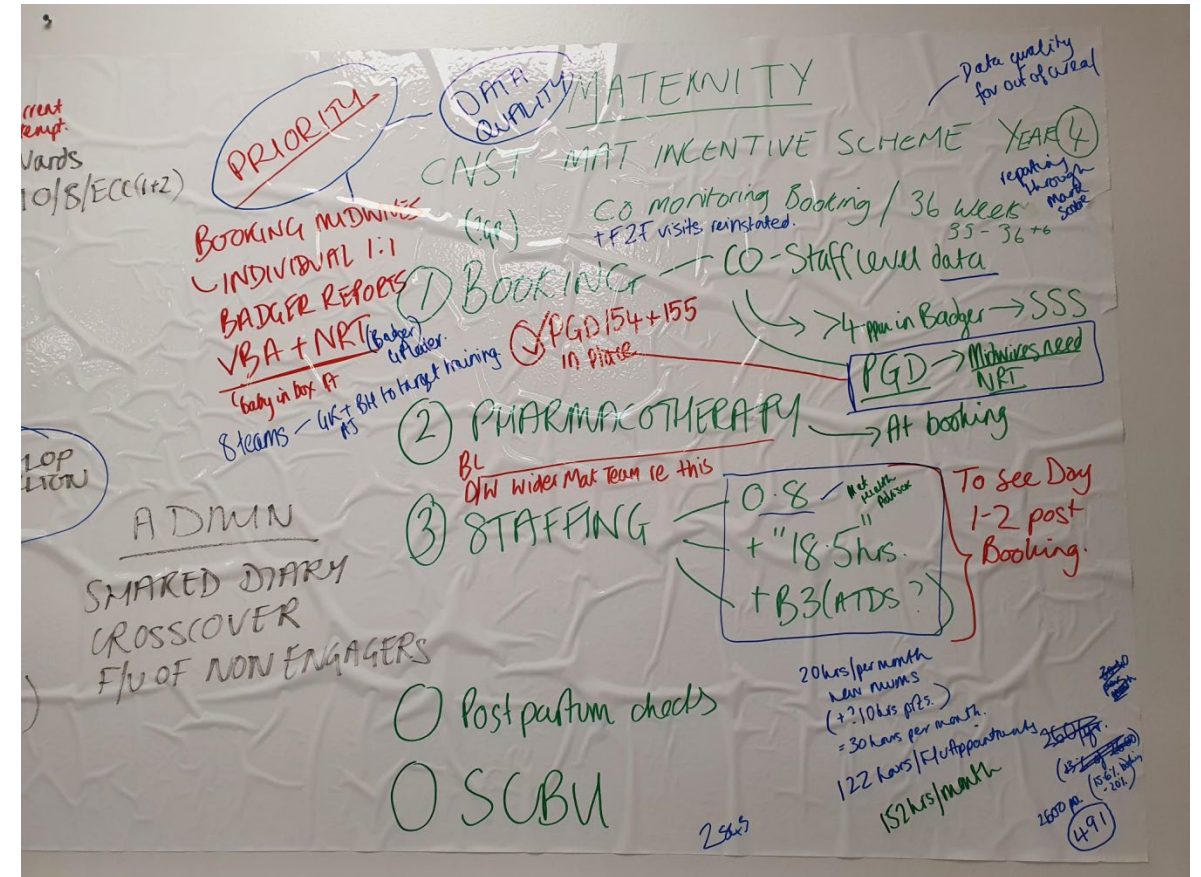 rrent
tempt.
Wards
10/8/ECC(1+2)
LOP
PRIORITY
DATA
QUALITY
MATERNITY
Data quality
for out of area!
CNST MAT INCENTIVE SCHEME YEAR 4
reporting
through
CO monitoring Booking / 36 week
+ F2F visits reinstated.
35-36+6
BOOKING MIDWIVES
INDIVIDUAL 1:1
BADGER REPORTS
VBA + NRT (Badger)
baby in box A
8 teams - GK + BH to target training
① BOOKING — CO-Staff level data
>4ppm in Badger → SSS
PGD → Midwives need
NRT
PGD 154+155
in place
② PHARMACOTHERAPY → At booking
BL
D/W Wider Mat Team re this
③ STAFFING
0.8
Mat
Health
Advisor
+ "18.5hrs."
+B3 (ATDS?)
To see Day
1-2 post
Booking.
ADMIN
SHARED DIARY
CROSSCOVER
F/U OF NON ENGAGERS
Postpartum checks
SCBU
20hrs/per month
new mums
(+?10hrs prts.)
=30hours per month.
122 hours/F/u Appointments
152hrs/month
2600
491